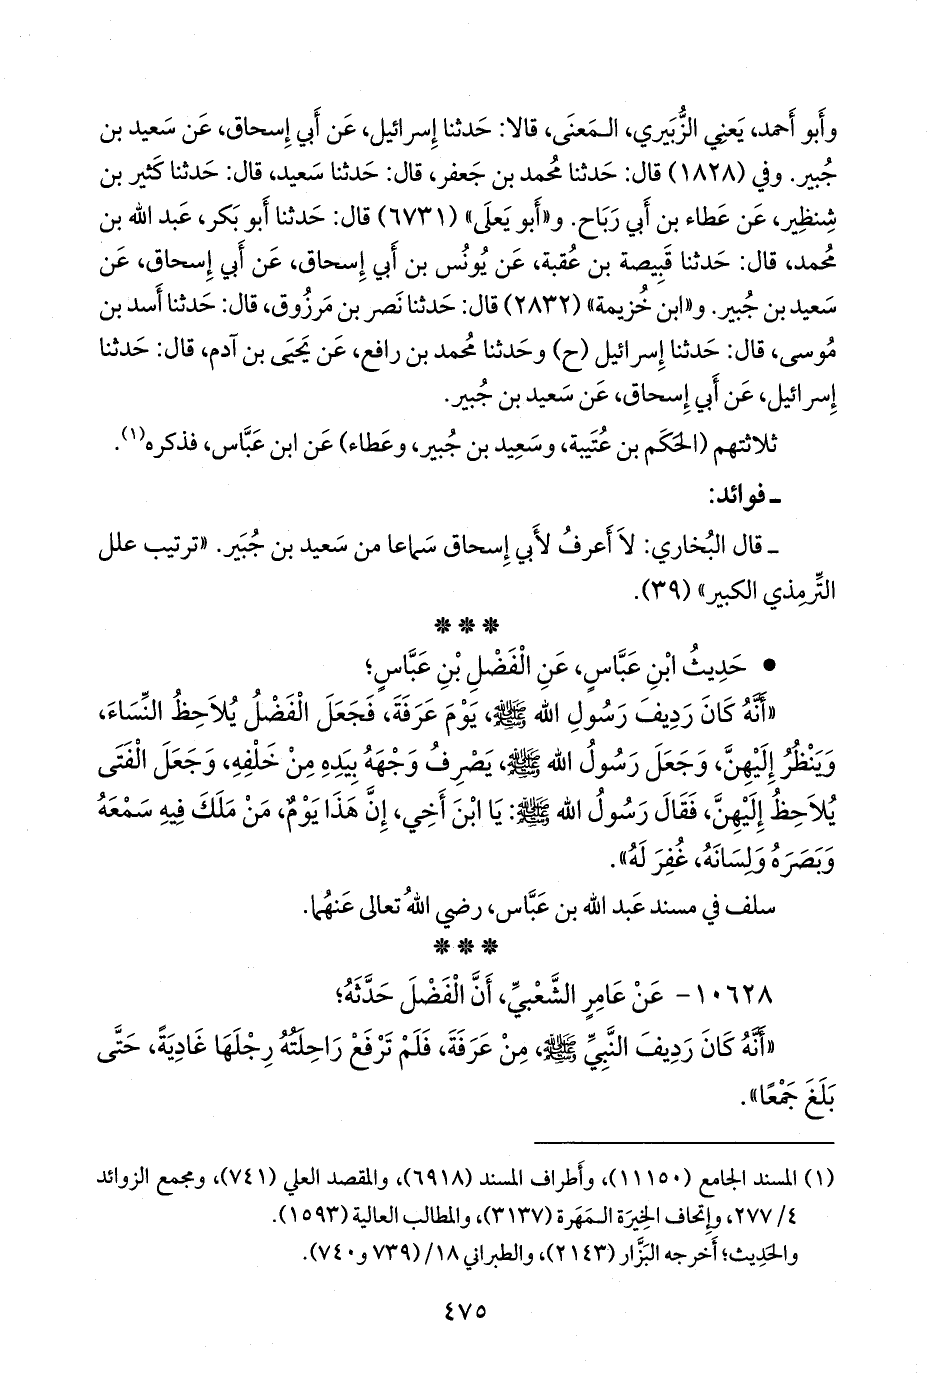 وأَبو أَحمد، يَعنِي الزُّبَيري، الـمَعنَى، قالا: حَدثنا إِسرائيل، عَن أَبي إِسحاق، عَن سَعيد بن
جُبير. وفي (١٨٢٨) قال: حَدثنا مُحمد بن جَعفر، قال: حَدثنا سَعيد، قال: حَدثنا كَثير بن
شِنظِير، عَن عَطاء بن أَبي رَبَاح. و«أَبو يَعلَى» (٦٧٣١) قال: حَدثنا أَبو بَكر، عَبد الله بن
مُحمد، قال: حَدثنا قَبِيصة بن عُقبة، عَن يُونُس بن أَبي إِسحاق، عَن أَبي إِسحاق، عَن
سَعيد بن جُبير. و«ابن خُزيمة» (٢٨٣٢) قال: حَدثنا نَصر بن مَرزُوق، قال: حَدثنا أَسد بن
مُوسى، قال: حَدثنا إِسرائيل (ح) وحَدثنا مُحمد بن رافع، عَن يَحيَى بن آدم، قال: حَدثنا
إِسرائيل، عَن أَبي إِسحاق، عَن سَعيد بن جُبير.
ثلاثتهم (الحَكَم بن عُتَيبة، وسَعِيد بن جُبير، وعَطاء) عَن ابن عَبَّاس، فذكره(١).
ـ فوائد:
ـ قال البُخاري: لاَ أَعرفُ لأَبي إِسحاق سَماعا من سَعيد بن جُبَير. «ترتيب علل
التِّرمِذي الكبير» (٣٩).
* * *
• حَدِيثُ ابْنِ عَبَّاسٍ، عَنِ الْفَضْلِ بْنِ عَبَّاسٍ؛
«أَنَّهُ كَانَ رَدِيفَ رَسُولِ الله ﷺ، يَوْمَ عَرَفَةَ، فَجَعَلَ الْفَضْلُ يُلاَحِظُ النِّسَاءَ،
وَيَنْظُرُ إِلَيْهِنَّ، وَجَعَلَ رَسُولُ الله ﷺ، يَصْرِفُ وَجْهَهُ بِيَدِهِ مِنْ خَلْفِهِ، وَجَعَلَ الْفَتَى
يُلاَحِظُ إِلَيْهِنَّ، فَقَالَ رَسُولُ الله ﷺ: يَا ابْنَ أَخِي، إِنَّ هَذَا يَوْمٌ، مَنْ مَلَكَ فِيهِ سَمْعَهُ
وَبَصَرَهُ وَلِسَانَهُ، غُفِرَ لَهُ».
سلف في مسند عَبد الله بن عَبَّاس، رضي اللهُ تعالى عَنهُما.
* * *
١٠٦٢٨- عَنْ عَامِرٍ الشَّعْبِيِّ، أَنَّ الْفَضْلَ حَدَّثَهُ؛
«أَنَّهُ كَانَ رَدِيفَ النَّبِيِّ ﷺ، مِنْ عَرَفَةَ، فَلَمْ تَرْفَعْ رَاحِلَتُهُ رِجْلَهَا غَادِيَةً، حَتَّى
بَلَغَ جَمْعًا».
(١) المسند الجامع (١١١٥٠)، وأَطراف المسند (٦٩١٨)، والمقصد العلي (٧٤١)، ومجمع الزوائد
٤/ ٢٧٧، وإِتحاف الخِيرَة الـمَهَرة (٣١٣٧)، والمطالب العالية (١٥٩٣).
والحَدِيث؛ أَخرجه البَزَّار (٢١٤٣)، والطبراني ١٨/ (٧٣٩ و٧٤٠).
٤٧٥